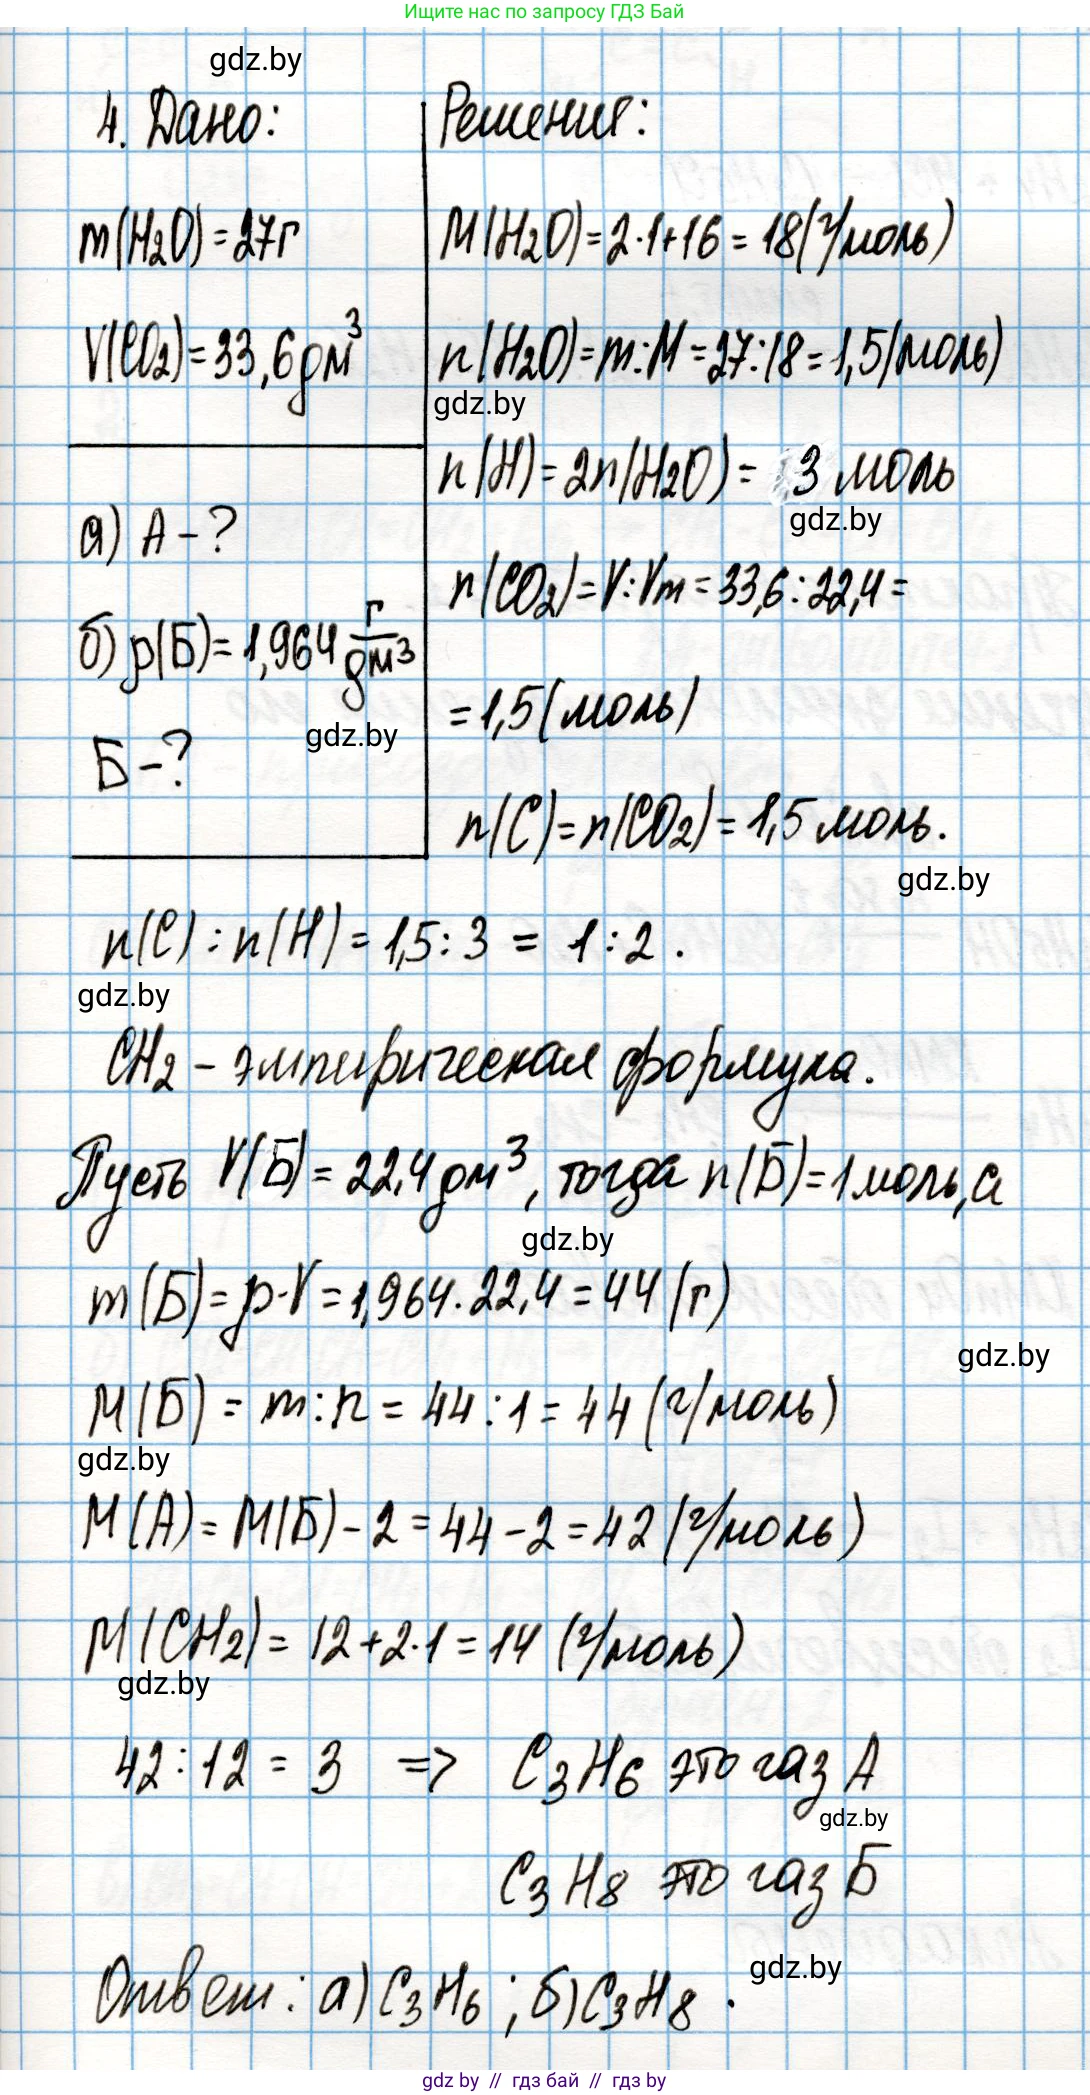 Ищите нас по запросу ГДЗ Бай
gdz.by
4. Дано:
m(H₂O)=27г
V(CO₂)=33,6 дм³
а) А-?
б) p(Б)=1,964 г/дм³
gdz.by
Б-?
Решения:
M(H₂O)=2·1+16=18(г/моль)
n(H₂O)=m:M=27:18=1,5(моль)
gdz.by
n(H)=2n(H₂O)= 3 моль
gdz.by
n(CO₂)=V:Vm=33,6:22,4=
=1,5(моль)
n(C)=n(CO₂)=1,5 моль.
gdz.by
n(C):n(H)=1,5:3 = 1:2.
gdz.by
CH₂ - эмпирическая формула.
Пусть V(Б)=22,4 дм³, тогда n(Б)=1 моль, а
gdz.by
m(Б)=p·V=1,964·22,4=44(г)
gdz.by
M(Б)=m:n=44:1=44(г/моль)
gdz.by
M(А)=M(Б)-2=44-2=42(г/моль)
M(CH₂)=12+2·1=14 (г/моль)
gdz.by
42:12 = 3 => C₃H₆ это газ А
gdz.by
C₃H₈ это газ Б
Ответ: а) C₃H₆; б) C₃H₈.
gdz.by
gdz.by // гдз бай // гдз by